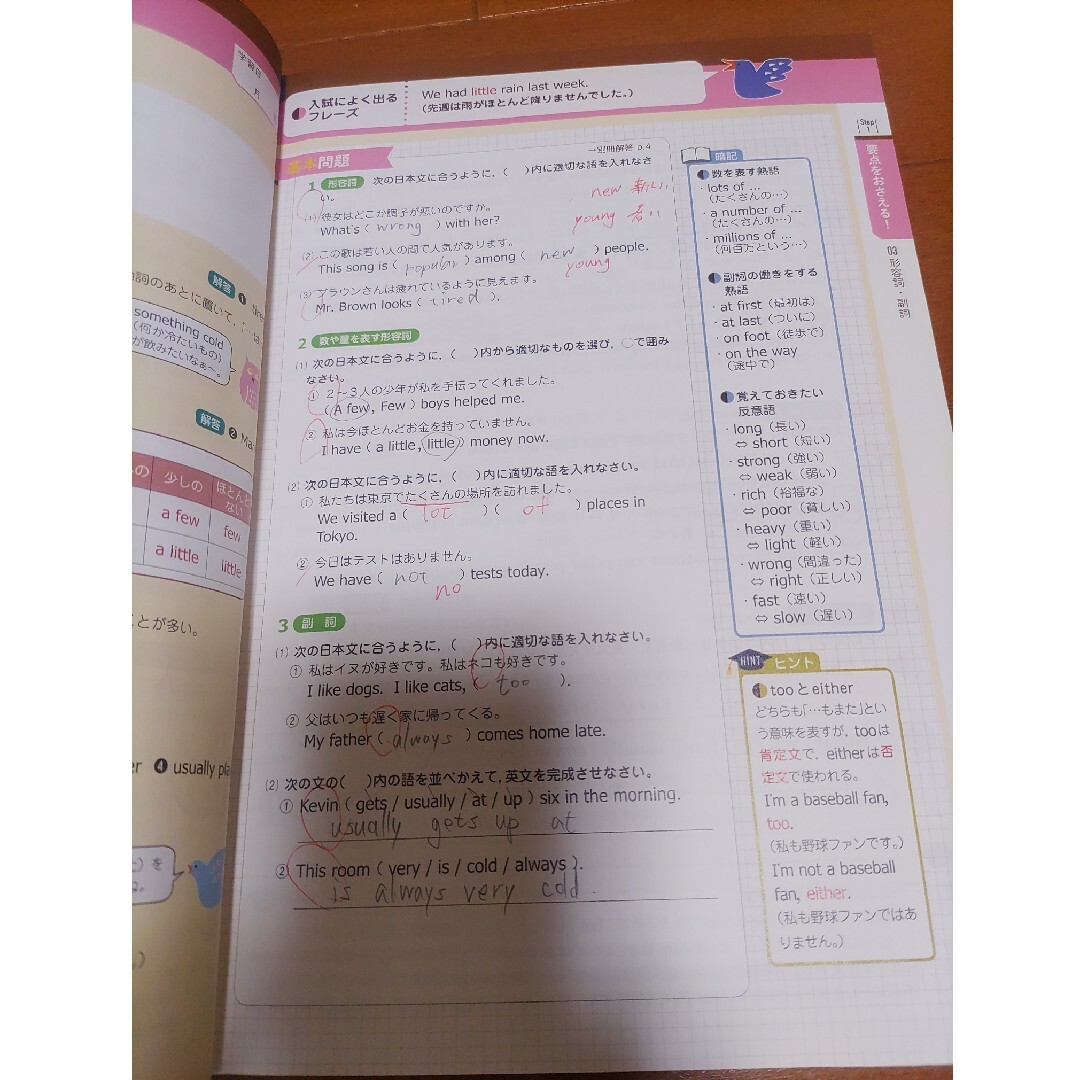 学習日
月
詞のあとに置いて,
解答 ❶
something cold
(何か冷たいもの)
が飲みたいなぁ〜。
解答 ❷ Ma
少しの ほとんど
ない
a few few
a little little
ことが多い。
er ❹ usually pla
入試によく出る
フレーズ
We had little rain last week.
(先週は雨がほとんど降りませんでした。)
基本問題
→別冊解答 p.4
1 形容詞 次の日本文に合うように,( )内に適切な語を入れなさ
い。
(1) 彼女はどこか調子が悪いのですか。
What's ( wrong ) with her?
new 新しい
young 若い
(2) この歌は若い人の間で人気があります。
This song is ( popular ) among ( new ) people.
young
(3) ブラウンさんは疲れているように見えます。
Mr. Brown looks ( tired ).
2 数や量を表す形容詞
(1) 次の日本文に合うように,( )内から適切なものを選び,○で囲み
なさい。
① 2〜3人の少年が私を手伝ってくれました。
( A few, Few ) boys helped me.
② 私は今ほとんどお金を持っていません。
I have ( a little, little ) money now.
(2) 次の日本文に合うように,( )内に適切な語を入れなさい。
① 私たちは東京でたくさんの場所を訪れました。
We visited a ( lot ) ( of ) places in
Tokyo.
② 今日はテストはありません。
We have ( not ) tests today.
no
3 副詞
(1) 次の日本文に合うように,( )内に適切な語を入れなさい。
① 私はイヌが好きです。私はネコも好きです。
I like dogs. I like cats, ( too ).
② 父はいつも遅く家に帰ってくる。
My father ( always ) comes home late.
(2) 次の文の( )内の語を並べかえて,英文を完成させなさい。
① Kevin ( gets / usually / at / up ) six in the morning.
usually gets up at
② This room ( very / is / cold / always ).
is always very cold.
暗記
数を表す熟語
・lots of …
(たくさんの…)
・a number of …
(たくさんの…)
・millions of …
(何百万という…)
副詞の働きをする
熟語
・at first(最初は)
・at last(ついに)
・on foot(徒歩で)
・on the way
(途中で)
覚えておきたい
反意語
・long(長い)
⇔ short(短い)
・strong(強い)
⇔ weak(弱い)
・rich(裕福な)
⇔ poor(貧しい)
・heavy(重い)
⇔ light(軽い)
・wrong(間違った)
⇔ right(正しい)
・fast(速い)
⇔ slow(遅い)
HINT ヒント
tooとeither
どちらも「…もまた」とい
う意味を表すが, tooは
肯定文で, eitherは否
定文で使われる。
I'm a baseball fan,
too.
(私も野球ファンです。)
I'm not a baseball
fan, either.
(私も野球ファンではあ
りません。)
Step
1
要点をおさえる!
03 形容詞・副詞